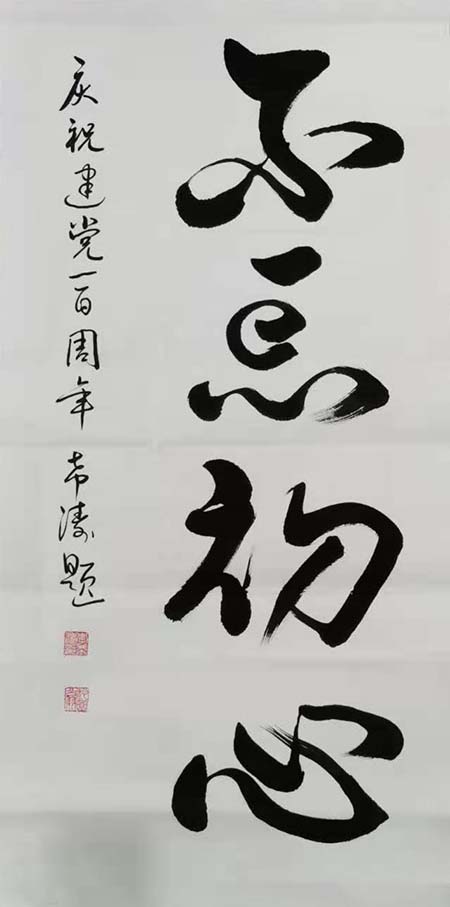 不忘初心
庆祝建党一百周年 希涛题